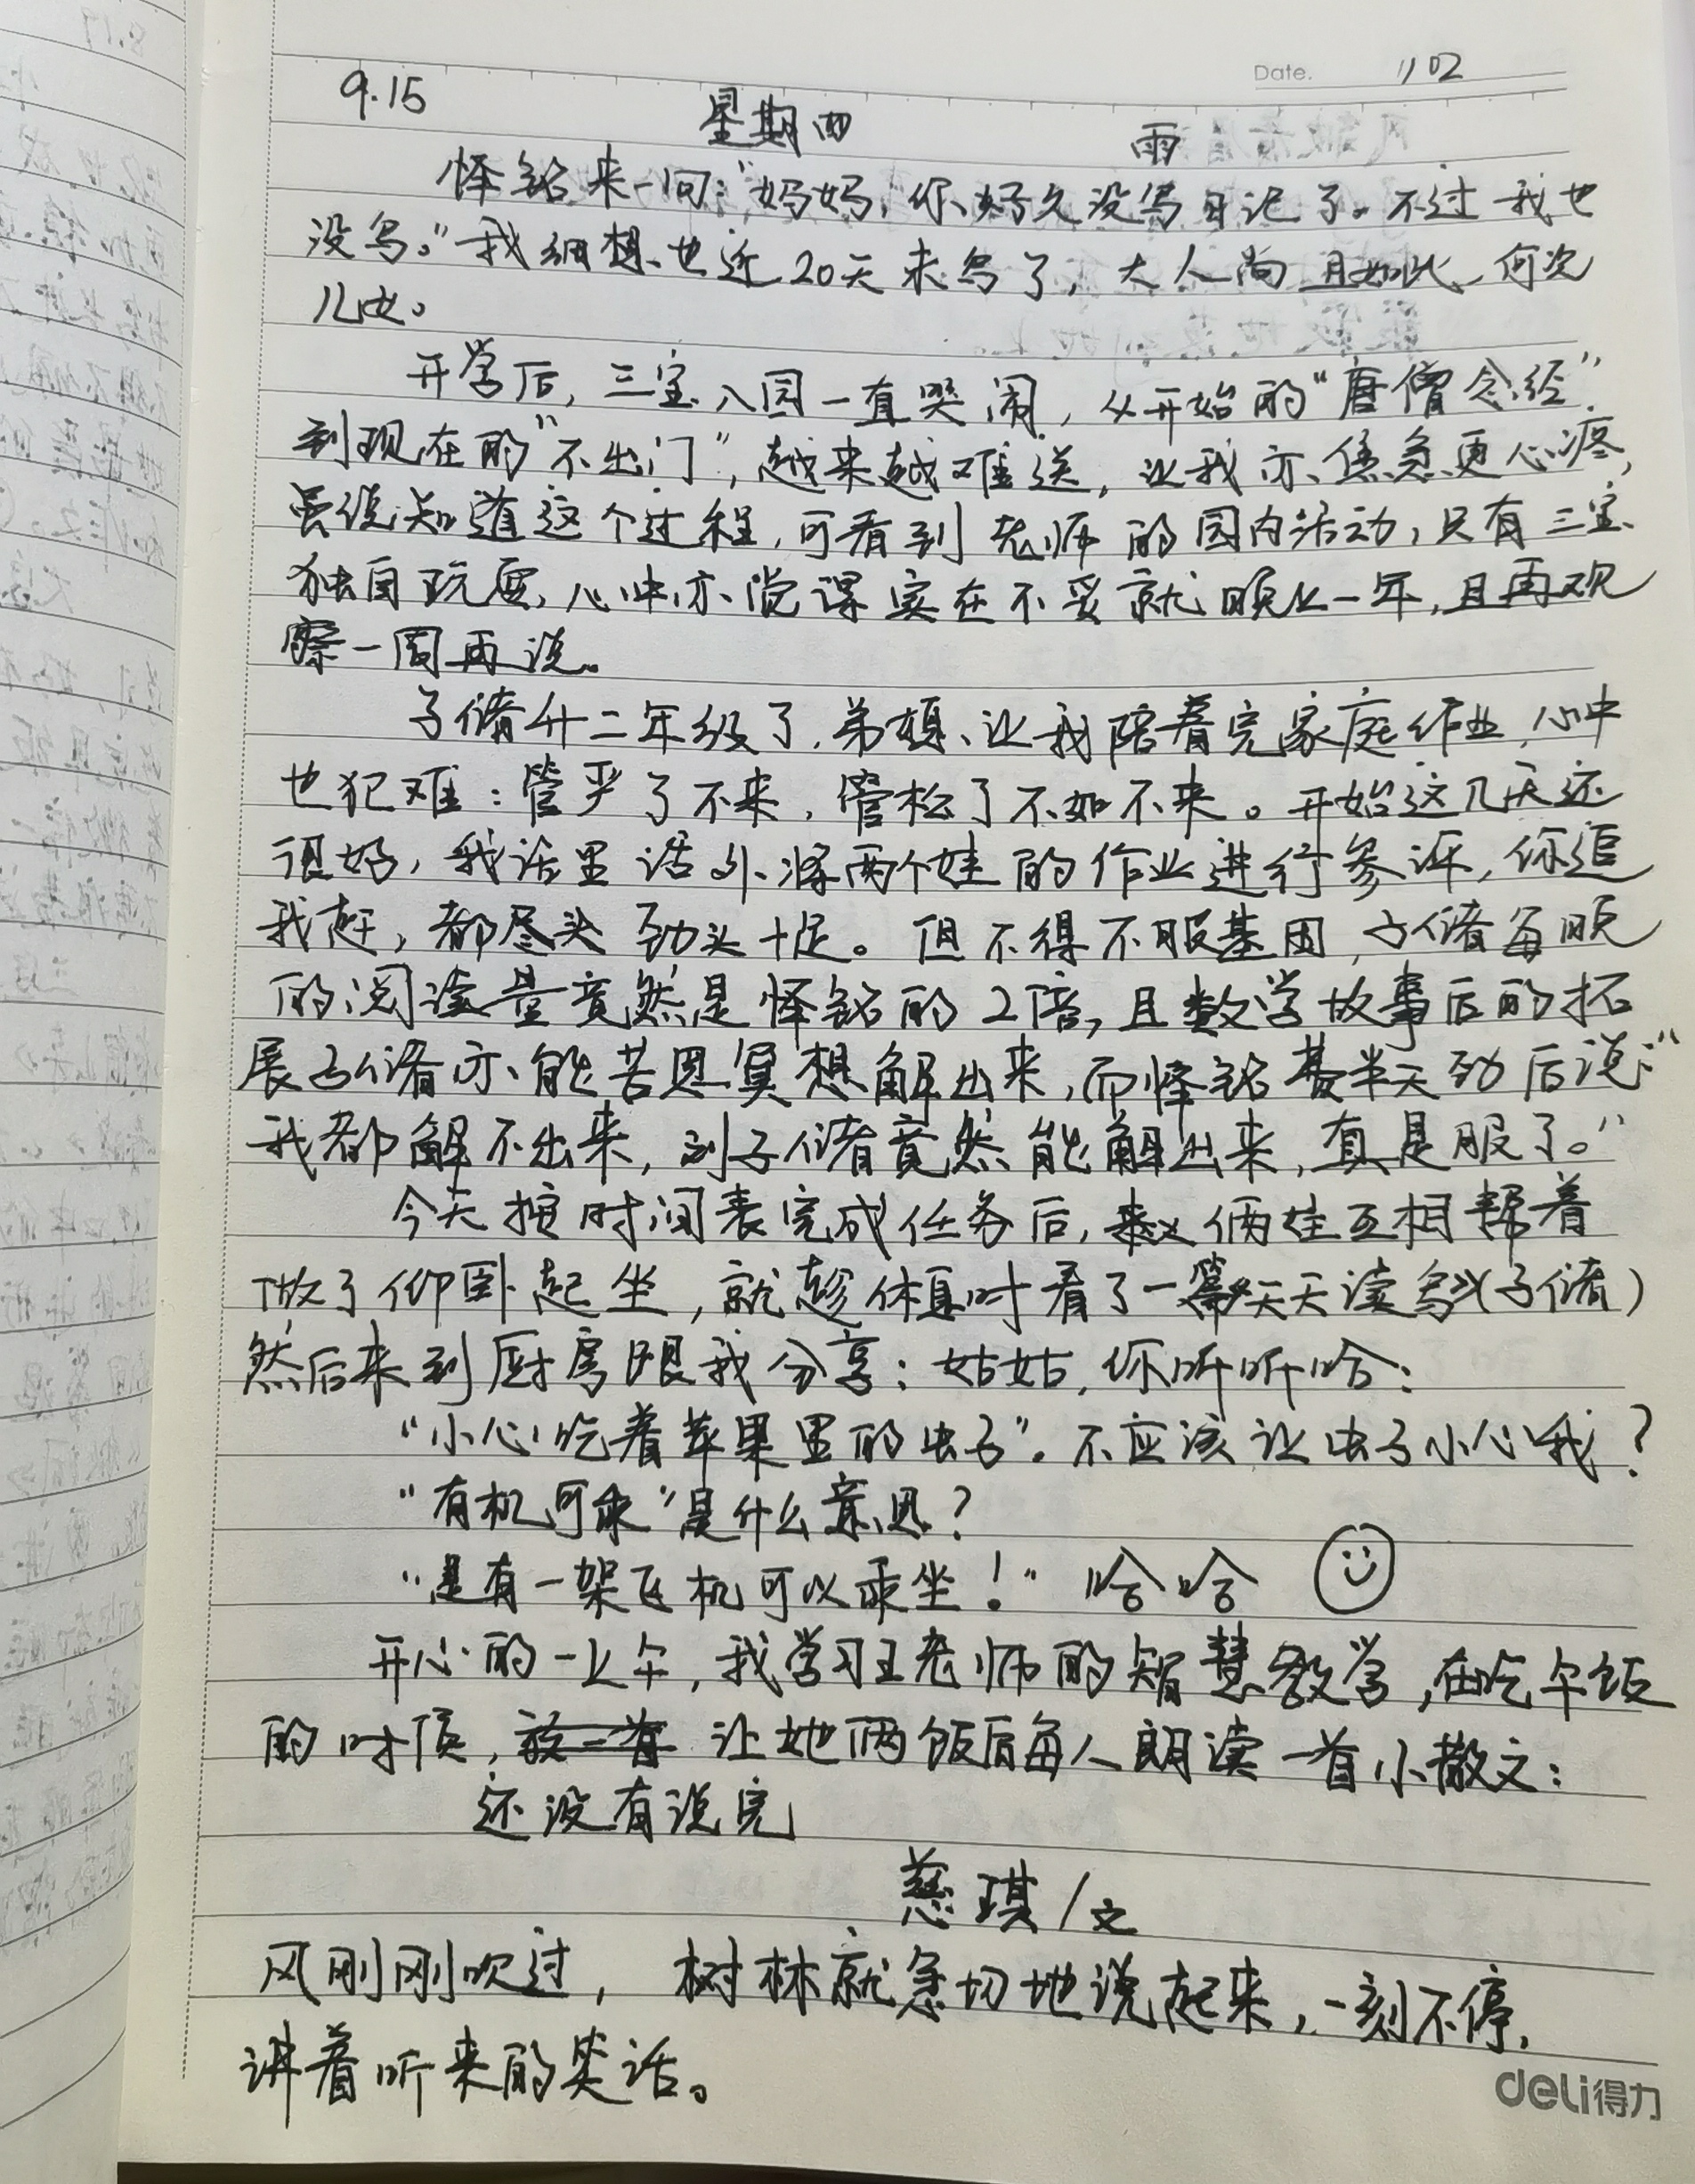 Date. 1102
9.15 星期四 雨
怿铭来一问:“妈妈,你好久没写日记了。不过我也
没写。”我细想也近20天未写了,大人尚且如此、何况
儿也。
开学后,三宝入园一直哭闹,从开始的“唐僧念经”
到现在的“不出门”,越来越难送,让我亦焦急更心疼,
虽说知道这个过程,可看到老师的园内活动,只有三宝
独自玩耍,心中亦觉得实在不妥就晚上一年,且再观
察一周再说。
子脩升二年级了,弟媳、让我陪着完家庭作业,心中
也犯难:管严了不来,管松了不如不来。开始这几天还
很好,我话里话外将两个娃的作业进行参评,你追
我赶,都尽头劲头十足。但不得不服基因,子脩每晚
的阅读量竟然是怿铭的2倍,且数学故事后的拓
展子脩亦能苦思冥想解出来,而怿铭费半天劲后说:“
我都解不出来,到子脩竟然能解出来,真是服了。”
今天按时间表完成任务后,俩娃互相帮着
做了仰卧起坐,就趁休息时看了一篇天天读写(子脩)
然后来到厨房跟我分享:姑姑,你听听哈:
“小心吃着苹果里的虫子”。不应该让虫子小心我?
“有机可乘”是什么意思?
“是有一架飞机可以乘坐!”哈哈
开心的一上午,我学习王老师的智慧教学,在吃午饭
的时候,让她俩饭后每人朗读一首小散文:
还没有说完
慈琪/文
风刚刚吹过,树林就急切地说起来,一刻不停,
讲着听来的笑话。
deli得力